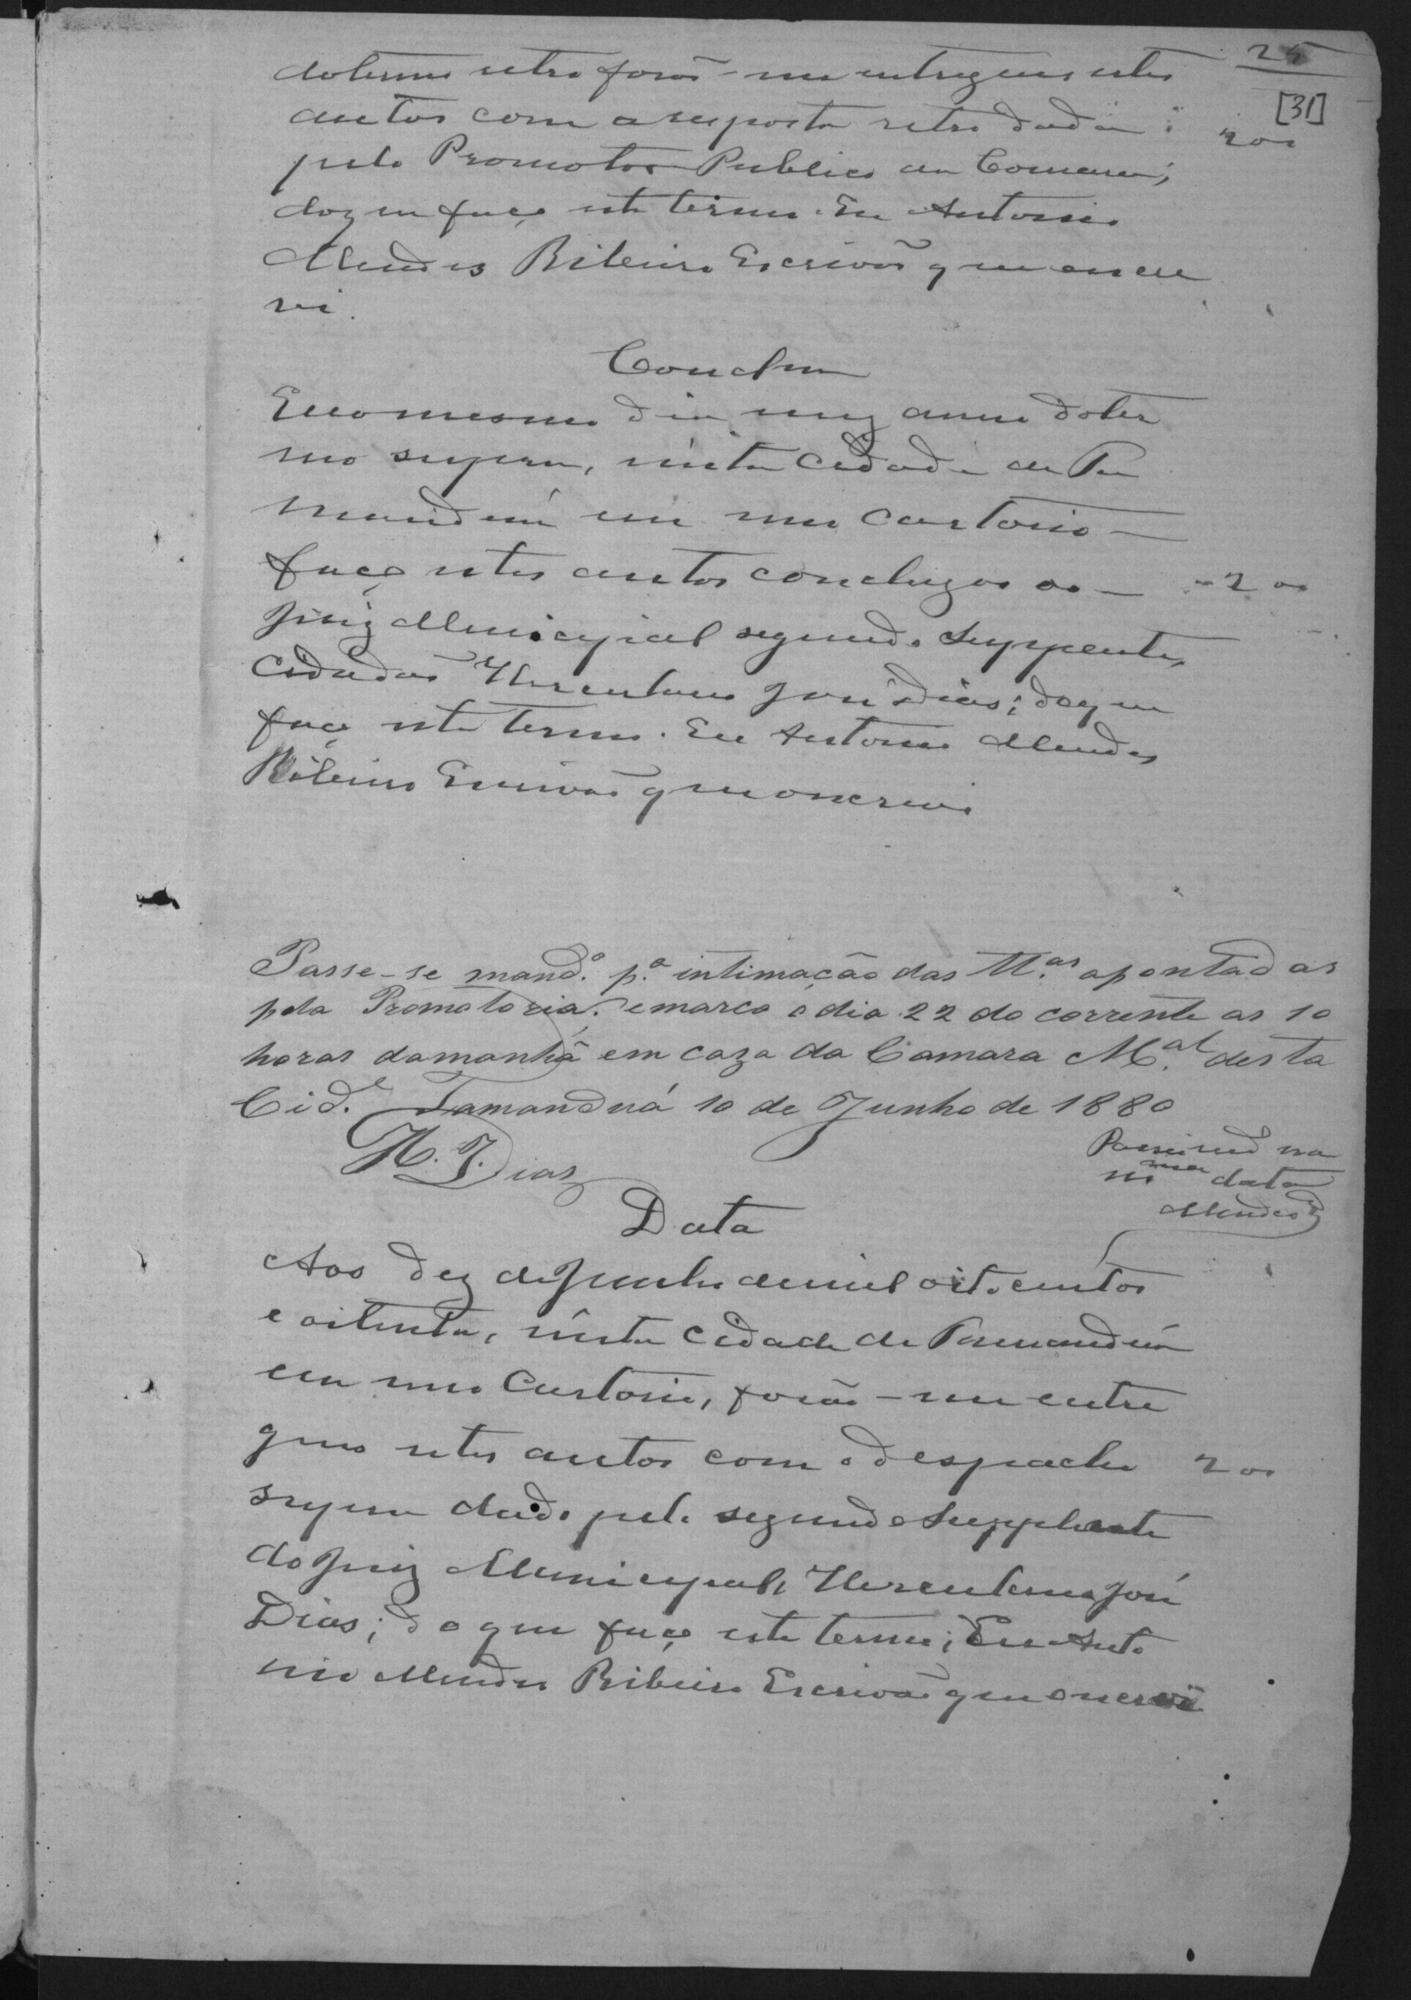 25
[31]
do termo retro forão-me entregues estes
autos com a resposta retro dada 200
pelo Promotor Publico da Comarca;
doq. eu faço este termo. Eu Antonio
Mendes Ribeiro Escrivão que o escre
vi.
Conclm
E no mesmo dia mez anno do ter
mo supra, nesta cidade de Ta
manduá em meu cartorio —
faço estes autos concluzos ao — 200
Juiz Municipal segundo Supplente,
cidadão Herculano José Dias; do que
faço este termo. Eu Antonio Mendes
Ribeiro Escrivão que o escrevi
Passe-se mand.o p.a intimação das tt.as apontadas
pela Promotoria. e marco o dia 22 do corrente as 10
horas da manhã em caza da Camara M.al desta
Cid.e Tamanduá 10 de Junho de 1880
H. J. Dias
Passei mdo na
mma data
Mendes
Data
Aos dez de Junho de mil oitocentos
e oitenta, nésta cidade de Tamanduá
em meu Cartorio, forão-me entre
gues estes autos com o despacho 200
supra dado pelo segundo Supplente
do Juiz Municipal, Herculano José
Dias; do que faço este termo; Eu Anto
nio Mendes Ribeiro Escrivão que o escrevi